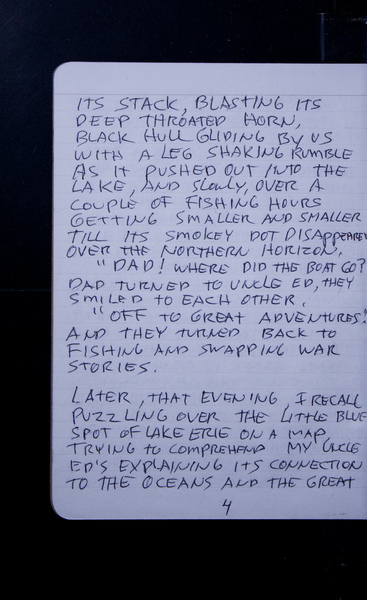 ITS STACK, BLASTING ITS
DEEP THROATED HORN,
BLACK HULL GLIDING BY US
WITH A LEG SHAKING RUMBLE
AS IT PUSHED OUT INTO THE
LAKE, AND SLOWLY, OVER A
COUPLE OF FISHING HOURS
GETTING SMALLER AND SMALLER
TILL ITS SMOKEY DOT DISAPPEARED
OVER THE NORTHERN HORIZON.
"DAD! WHERE DID THE BOAT GO?
DAD TURNED TO UNCLE ED, THEY
SMILED TO EACH OTHER.
"OFF TO GREAT ADVENTURES!
AND THEY TURNED BACK TO
FISHING AND SWAPPING WAR
STORIES.
LATER, THAT EVENING, I RECALL
PUZZLING OVER THE LITTLE BLUE
SPOT OF LAKE ERIE ON A MAP
TRYING TO COMPREHEND MY UNCLE
ED'S EXPLAINING ITS CONNECTION
TO THE OCEANS AND THE GREAT
4